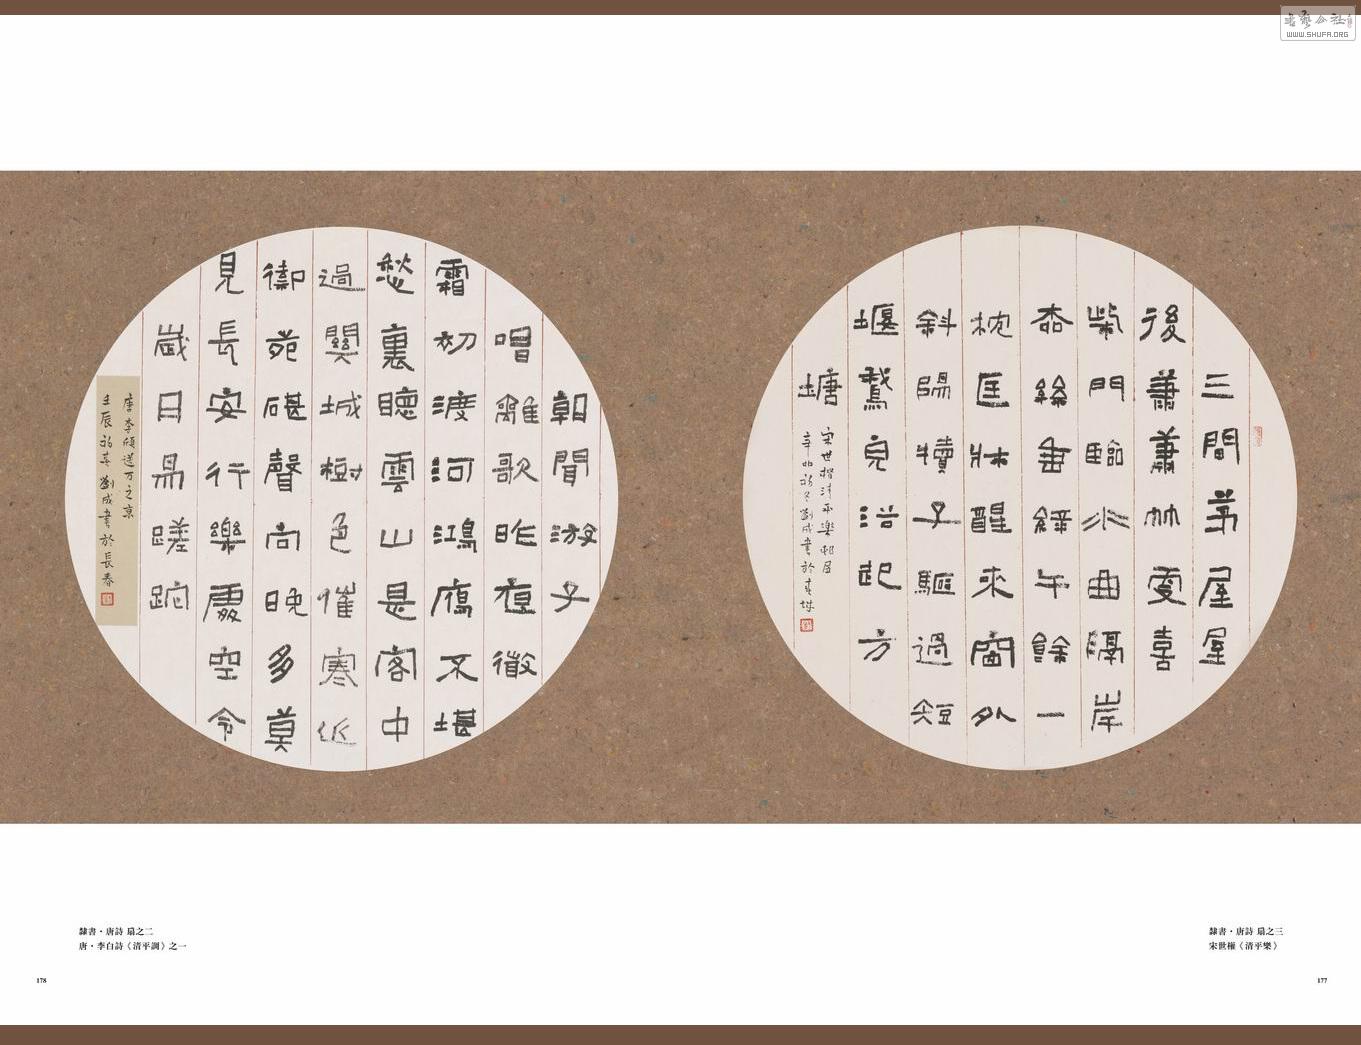 三間茅屋屋
後蕭蕭竹更喜
柴門臨水曲隔岸
柔絲垂綠午餘一
枕匡牀醒來窗外
斜陽犢子驅過短
堰鵝兒浴起方
塘
宋世犖清平樂邨居
辛卯初冬劉成書於春城
朝聞游子
唱離歌昨夜微
霜初渡河鴻鴈不堪
愁裏聽雲山是客中
過關城樹色催寒近
御苑碪聲向晚多莫
見長安行樂處空令
歲月易蹉跎
唐李頎送万之京
壬辰初春劉成書於長春
隸書·唐詩 扇之三
宋世權《清平樂》
177
隸書·唐詩 扇之二
唐·李白詩《清平調》之一
178
書藝公社
WWW.SHUFA.ORG